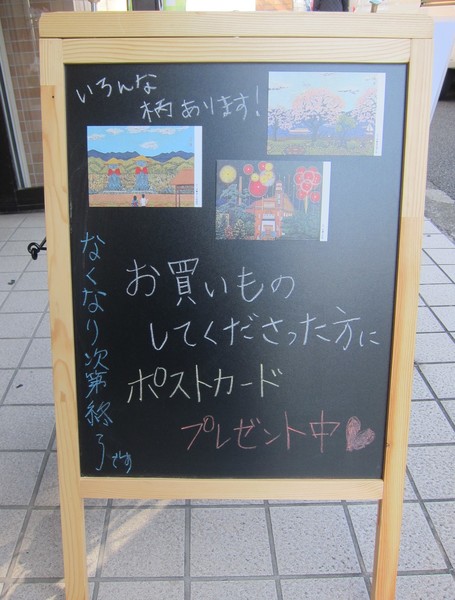 いろんな
柄あります!
お買いもの
してくださった方に
ポストカード
プレゼント中
なくなり次第終了です